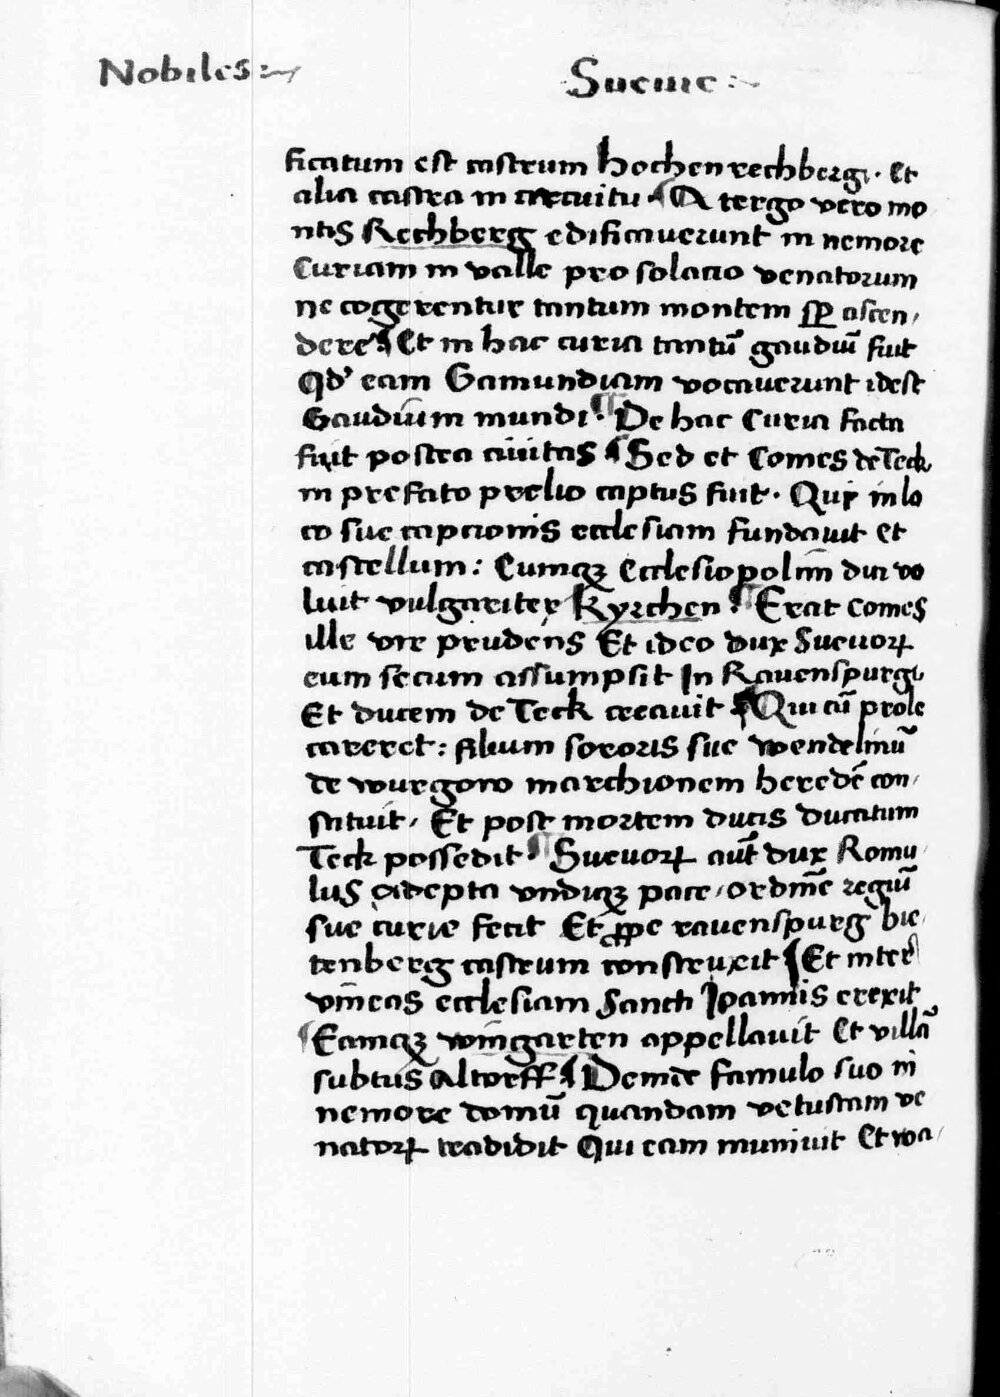 Nobiles
Sueuie
ficatum est castrum hochenrechberg. Et
alia castra in circuitu. A tergo vero mo
ntis Rechberg edificauerunt in nemore
Curiam in valle pro solacio venatorum
ne cogerentur tantum montem sꝑ ascen,
dere. Et in hac curia tantū gaudiū fuit
Qd' eam Gamundiam vocauerunt idest
Gaudium mundi. De hac Curia facta
fuit postea ciuitas Sed et Comes de Teck
in prefato prelio captus fuit. Qui in lo
co sue capcionis ecclesiam fundauit Et
castellum: Eumqꝫ Ecclesiopolim dici vo
luit vulgariter Kyrchen. Erat Comes
ille vir prudens Et ideo dux Sueuoꝝ
eum secum assumpsit In Rauenspurg
Et ducem de Teck creauit Qui cū prole
careret: filium sororis sue wendelinū
de wurgow marchionem heredē con,
stituit. Et post mortem ducis ducatum
Teck possedit Sueuoꝝ aūt dux Romu
lus adepta vndiqꝫ pace, ordinē regiū
sue curie fecit Et ꝓpe rauenspurg bie,
tenberg castrum construxit Et inter
vineas ecclesiam Sancti Joannis erexit
Eamqꝫ wingarten appellauit Et villā
subtus Altorff. Deinde famulo suo in
nemore domū quandam vetustam ve
natoꝝ tradidit Qui eam muniuit Et wa,